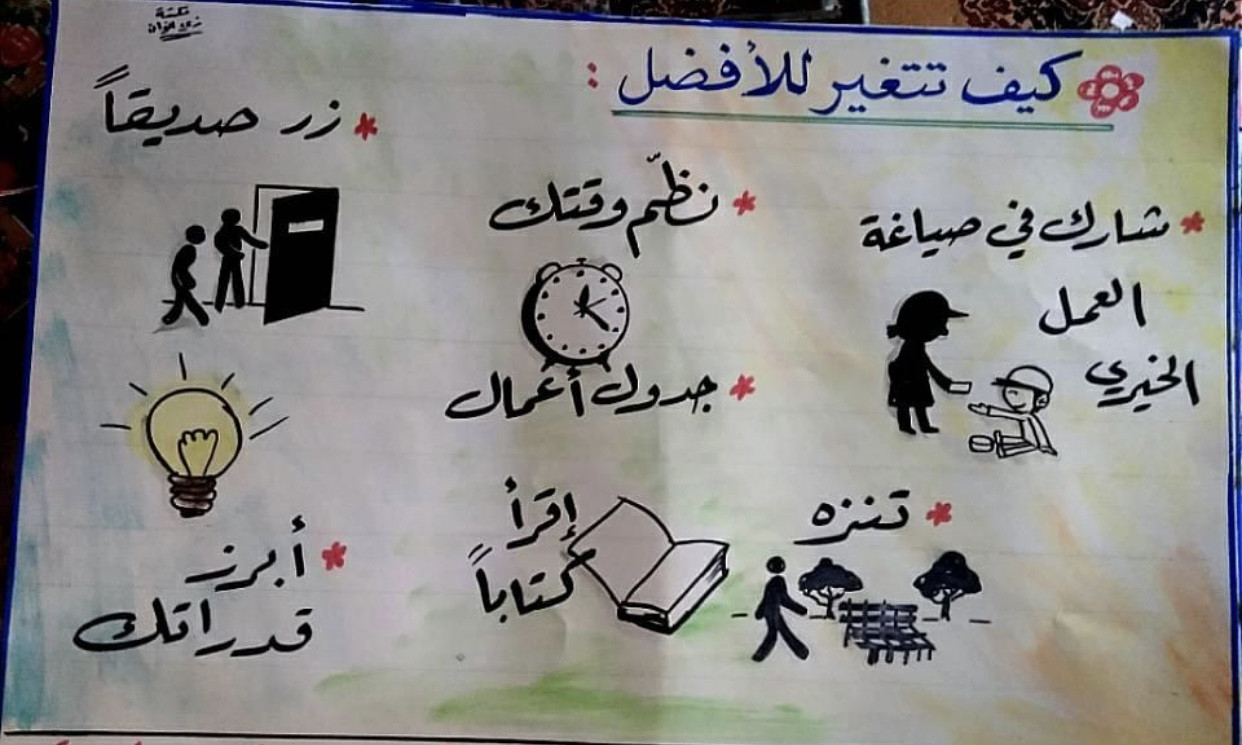 كيف تتغير للأفضل :
* شارك في صياغة
العمل
الخيري
* نظّم وقتك
* جدول أعمال
* زر صديقاً
* تنزه
إقرأ
كتاباً
* أبرز
قدراتك